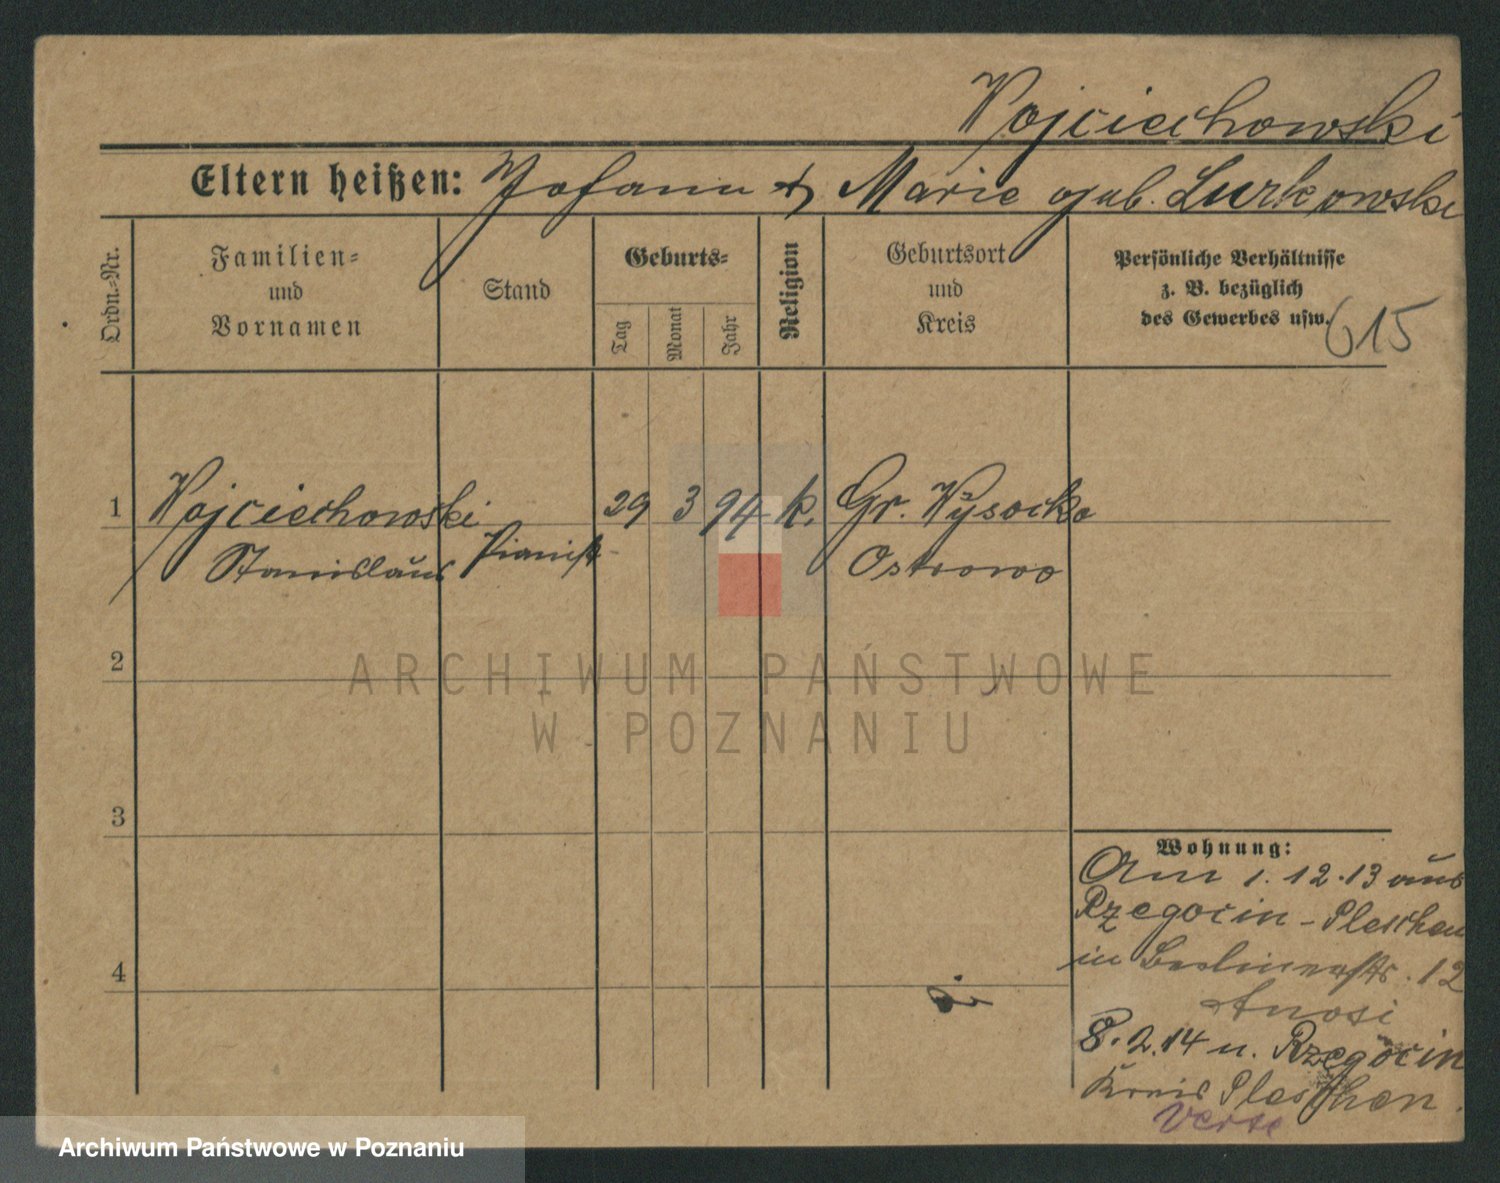 Wojciechowski
Eltern heißen: Johann & Marie geb. Lurkowski
Ordn.-Nr.
Familien-
und
Vornamen
Stand
Geburts-
Tag
Monat
Jahr
Religion
Geburtsort
und
Kreis
Persönliche Verhältnisse
z. B. bezüglich
des Gewerbes usw.
615
1 Wojciechowski 29 3 94 k. Gr. Wysocko
Stanislaus Pianist Ostrowo
2
3
4
Wohnung:
Am 1.12.13 aus
Rzegocin - Pleschen
in Berlinerstr. 12
8.2.14 n. Rzegocin
Kreis Pleschen.
verse
ARCHIWUM PAŃSTWOWE
W POZNANIU
Archiwum Państwowe w Poznaniu